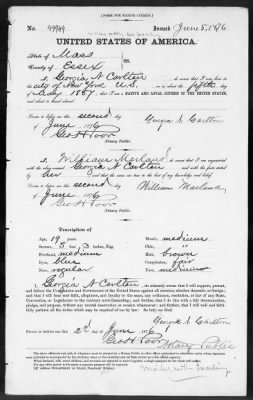 [FORM FOR NATIVE CITIZEN.]
No. 49949 Issued June 5, 1876
UNITED STATES OF AMERICA.
State of Mass
County of Essex } SS.
I, Georgia N Carlton, do swear that I was born in the
city of New York U.S. on or about the fifth day
of May 1857; that I am a NATIVE AND LOYAL CITIZEN OF THE UNITED STATES,
and about to travel abroad.
Sworn to before me this second day
of June 1876
Geo H Poor
Notary Public.
Georgia N. Carlton
I, William Mailand, do swear that I am acquainted
with the above named Georgia N Carlton and with the facts
stated by her and that the same are true to the best of my knowledge and belief.
Sworn to before me this second day
of June 1876
Geo H Poor
Notary Public.
William Mailand
Description of
Age: 19 years
Stature: 5 feet 3 inches, Eng.
Forehead: medium
Eyes: blue
Nose: regular
Mouth: medium
Chin: "
Hair: brown
Complexion: fair
Face: medium
I, Georgia N Carlton, do solemnly swear that I will support, protect,
and defend the Constitution and Government of the United States against all enemies, whether domestic or foreign;
and that I will bear true faith, allegiance, and loyalty to the same, any ordinance, resolution, or law of any State,
Convention, or Legislature to the contrary notwithstanding; and further, that I do this with a full determination,
pledge, and purpose, without any mental reservation or evasion whatsoever; and further, that I will well and faith-
fully perform all the duties which may be required of me by law: So help me God.
Georgia N Carlton
Sworn to before me this 2d day of June 1876
Geo H Poor
Notary Public